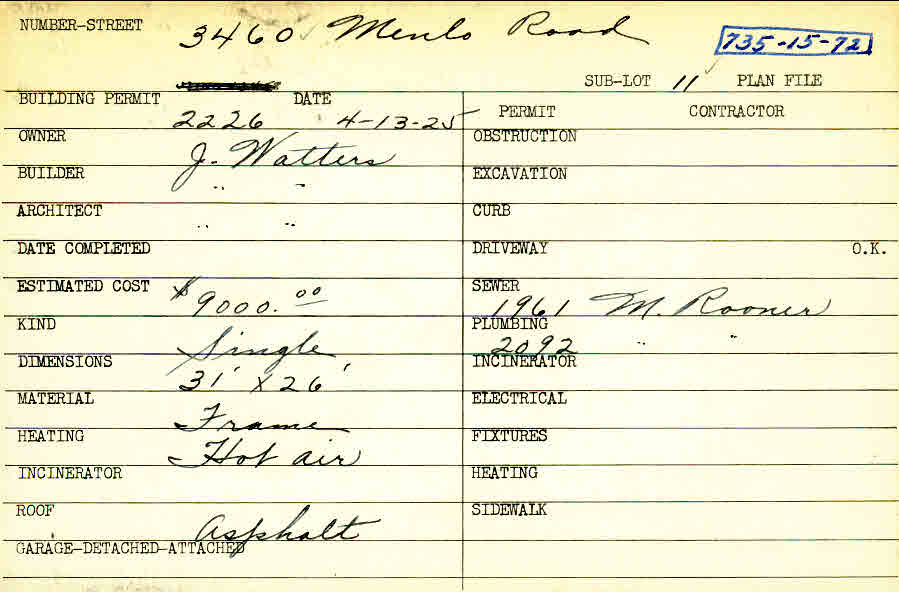 NUMBER-STREET 3460 Menlo Road 735-15-72
SUB-LOT 11 PLAN FILE
BUILDING PERMIT 2226 DATE 4-13-25
PERMIT CONTRACTOR
OWNER J. Watters
OBSTRUCTION
BUILDER " "
EXCAVATION
ARCHITECT " "
CURB
DATE COMPLETED
DRIVEWAY O.K.
ESTIMATED COST $9000.00
SEWER 1961 M. Rooner
KIND Single
PLUMBING 2092 " "
DIMENSIONS 31' x 26'
INCINERATOR
MATERIAL Frame
ELECTRICAL
HEATING Hot air
FIXTURES
INCINERATOR
HEATING
ROOF Asphalt
SIDEWALK
GARAGE-DETACHED-ATTACHED